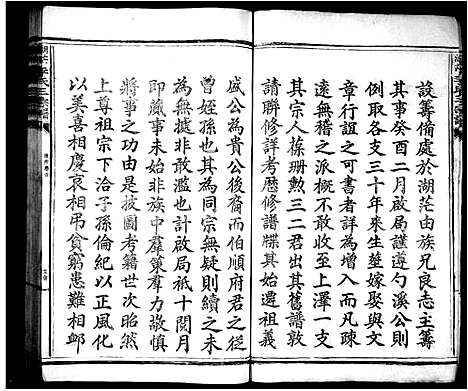 設籌備處於湖茫由族兄良志主籌
其事癸酉二月啟局謹遵勺溪公則
例取各支三十年來生莚嫁娶與文
章行誼之可書者詳為增入而凡疎
遠無稽之派概不敢徇至上澤一支
其宗人葆珊勲三二君出其舊譜敦
請聯修詳考歷修譜牒其始遷祖義
盛公為貴公後裔而伯順府君之從
曾姪孫也其為同宗無疑則續之未
為無據非敢濫也計啟局祗十閱月
即蕆事未始非族中羣策羣力敬慎
將事之功由是披圖考籍世次昭然
上尊祖宗下洽子孫倫紀以正風化
以美喜相慶哀相弔貧窮患難相卹